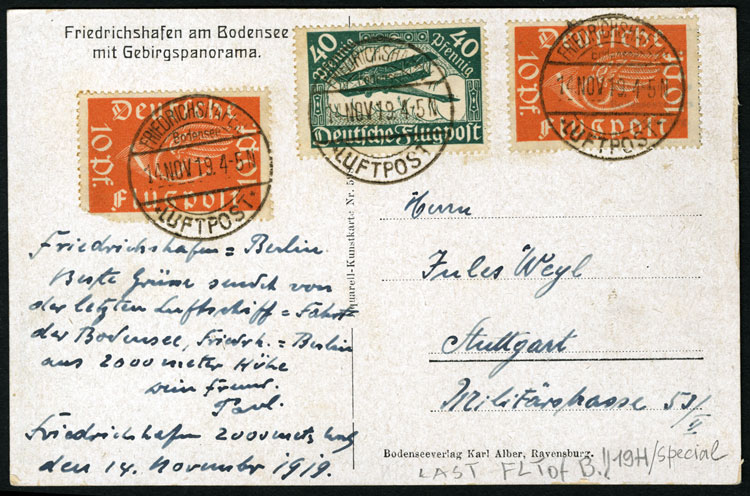 Friedrichshafen am Bodensee
mit Gebirgspanorama.
40 40
Pfennig Pfennig
Deutsche Flugpost
FRIEDRICHSHAFEN
14 NOV 19. 4-5 N
LUFTPOST
Deutsche
10
Flugpost
14 NOV 19. 4-5 N
LUFTPOST
Deutsche
10 Pf.
Flugpost
FRIEDRICHSHAFEN
Bodensee
14 NOV 19. 4-5 N
LUFTPOST
Friedrichshafen = Berlin.
Beste Grüsse sendet von
der letzten Luftschiff = Fahrt
der Bodensee, Friedrh. = Berlin
aus 2000 meter Höhe
Dein Freund.
Paul.
Friedrichshafen 2000 metr. hoch
den 14. November 1919.
Aquarell-Kunstkarte Nr. 5
Herrn
Jules Weyl
Stuttgart
Militärstrasse 51/II
Bodenseeverlag Karl Alber, Ravensburg.
LAST FLT of B. 19H/special